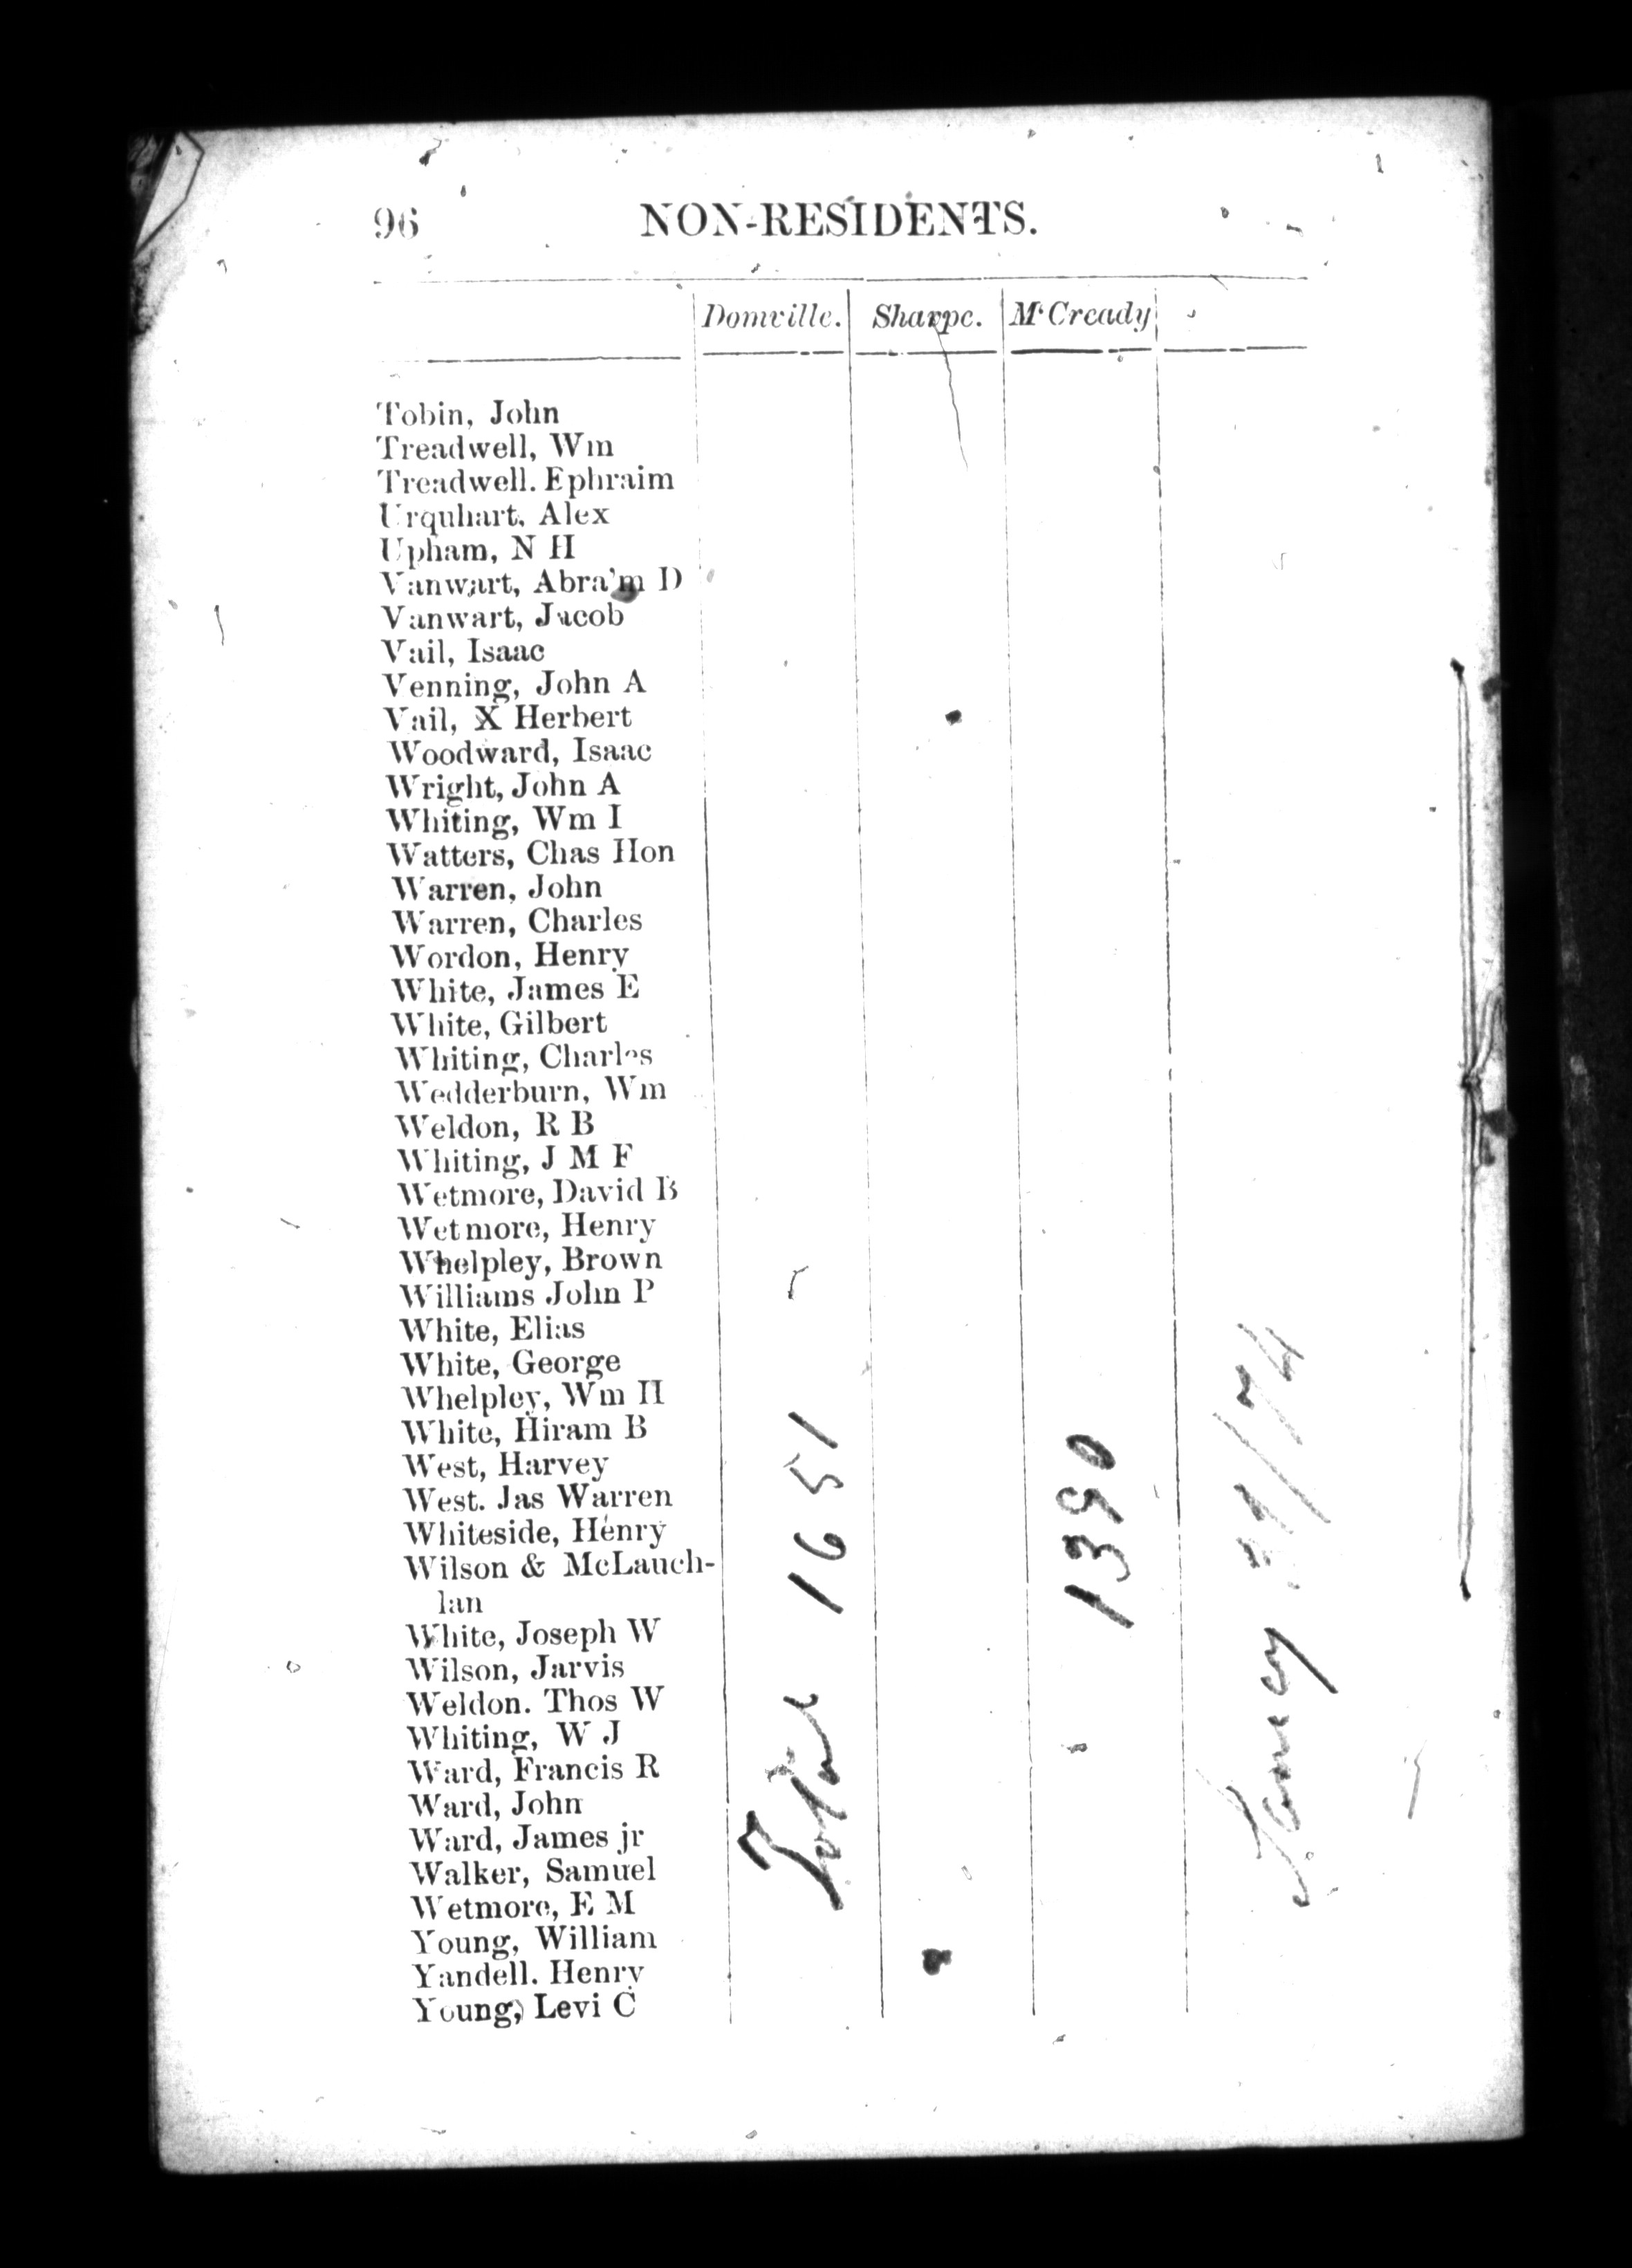 96 NON-RESIDENTS.
Domville. Sharpe. McCready
Tobin, John
Treadwell, Wm
Treadwell. Ephraim
Urquhart. Alex
Upham, N H
Vanwart, Abra'm D
Vanwart, Jacob
Vail, Isaac
Venning, John A
Vail, X Herbert
Woodward, Isaac
Wright, John A
Whiting, Wm I
Watters, Chas Hon
Warren, John
Warren, Charles
Wordon, Henry
White, James E
White, Gilbert
Whiting, Charles
Wedderburn, Wm
Weldon, R B
Whiting, J M F
Wetmore, David B
Wetmore, Henry
Whelpley, Brown
Williams John P
White, Elias
White, George
Whelpley, Wm H
White, Hiram B
West, Harvey
West. Jas Warren
Whiteside, Henry
Wilson & McLauch-
lan
White, Joseph W
Wilson, Jarvis
Weldon. Thos W
Whiting, W J
Ward, Francis R
Ward, John
Ward, James jr
Walker, Samuel
Wetmore, E M
Young, William
Yandell. Henry
Young, Levi C
Total 1651
1390